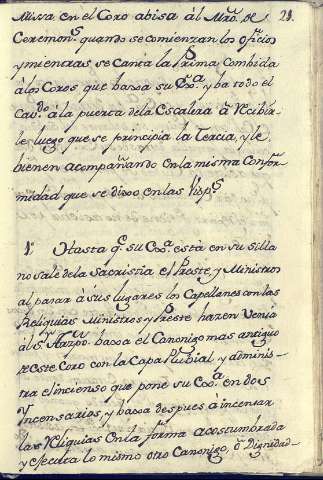 21.
Missa en el Coro abisa âl Mrô. de
Ceremons. quando se comienzan los oficios
y mientras se canta la Prima combida
â los Coros que baxa su Exâ. y ba todo el
Cavdo. â la puerta dela Escalera â Recibir-
le luego que se principia la Tercia, y le
bienen acompañando en la misma Confor-
midad que se dixo en las Visps.
1º Hasta qe. su Exâ. está en su silla
no sale de la Sacristia el Preste, y Ministros
al pasar â sus lugares los Capellanes con las
Reliquias Ministros y Preste hazen Venia
âl Sr. Arzpo. baxa el Canonigo mas antiguo
de este Coro con la Capa Plubial y adminis-
tra el incienso que pone su Exâ. en dos
Yncensarios, y baxa despues â incensar
las Reliquias en la forma acostumbrada
y ejecuta lo mismo otro Canonigo, ô Dignidad